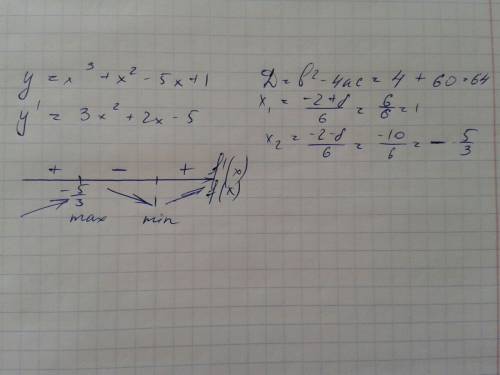 y = x³ + x² - 5x + 1
y' = 3x² + 2x - 5
D = b² - 4ac = 4 + 60 = 64
x₁ = (-2+8)/6 = 6/6 = 1
x₂ = (-2-8)/6 = -10/6 = -5/3
+ - + f'(x)
-5/3 1 f(x)
max min